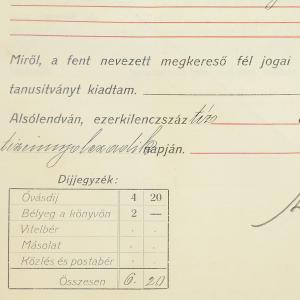 Miről, a fent nevezett megkereső fél jogai
tanusítványt kiadtam.
Alsólendván, ezerkilenczszáz tíz
tizennyolczadik napján.
Díjjegyzék:
Óvásdíj 4 20
Bélyeg a könyvön 2 —
Vitelbér . .
Másolat . .
Közlés és postabér . .
Összesen 6. 20